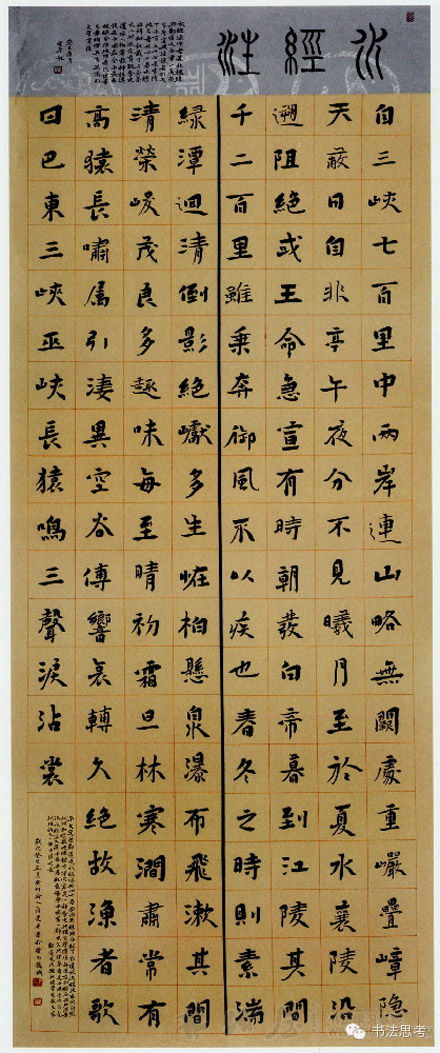 水經注
自三峽七百里中兩岸連山略無闕處重巖疊嶂隐
天蔽日自非亭午夜分不見曦月至於夏水襄陵沿
遡阻絕或王命急宣有時朝發白帝暮到江陵其間
千二百里雖乘奔御風不以疾也春冬之時則素湍
緑潭迴清倒影絕巘多生怪柏懸泉瀑布飛漱其間
清榮峻茂良多趣味每至晴初霜旦林寒澗肅常有
高猿長嘯属引淒異空谷傳響哀轉久絕故漁者歌
曰巴東三峽巫峽長猿鳴三聲淚沾裳
书法思考